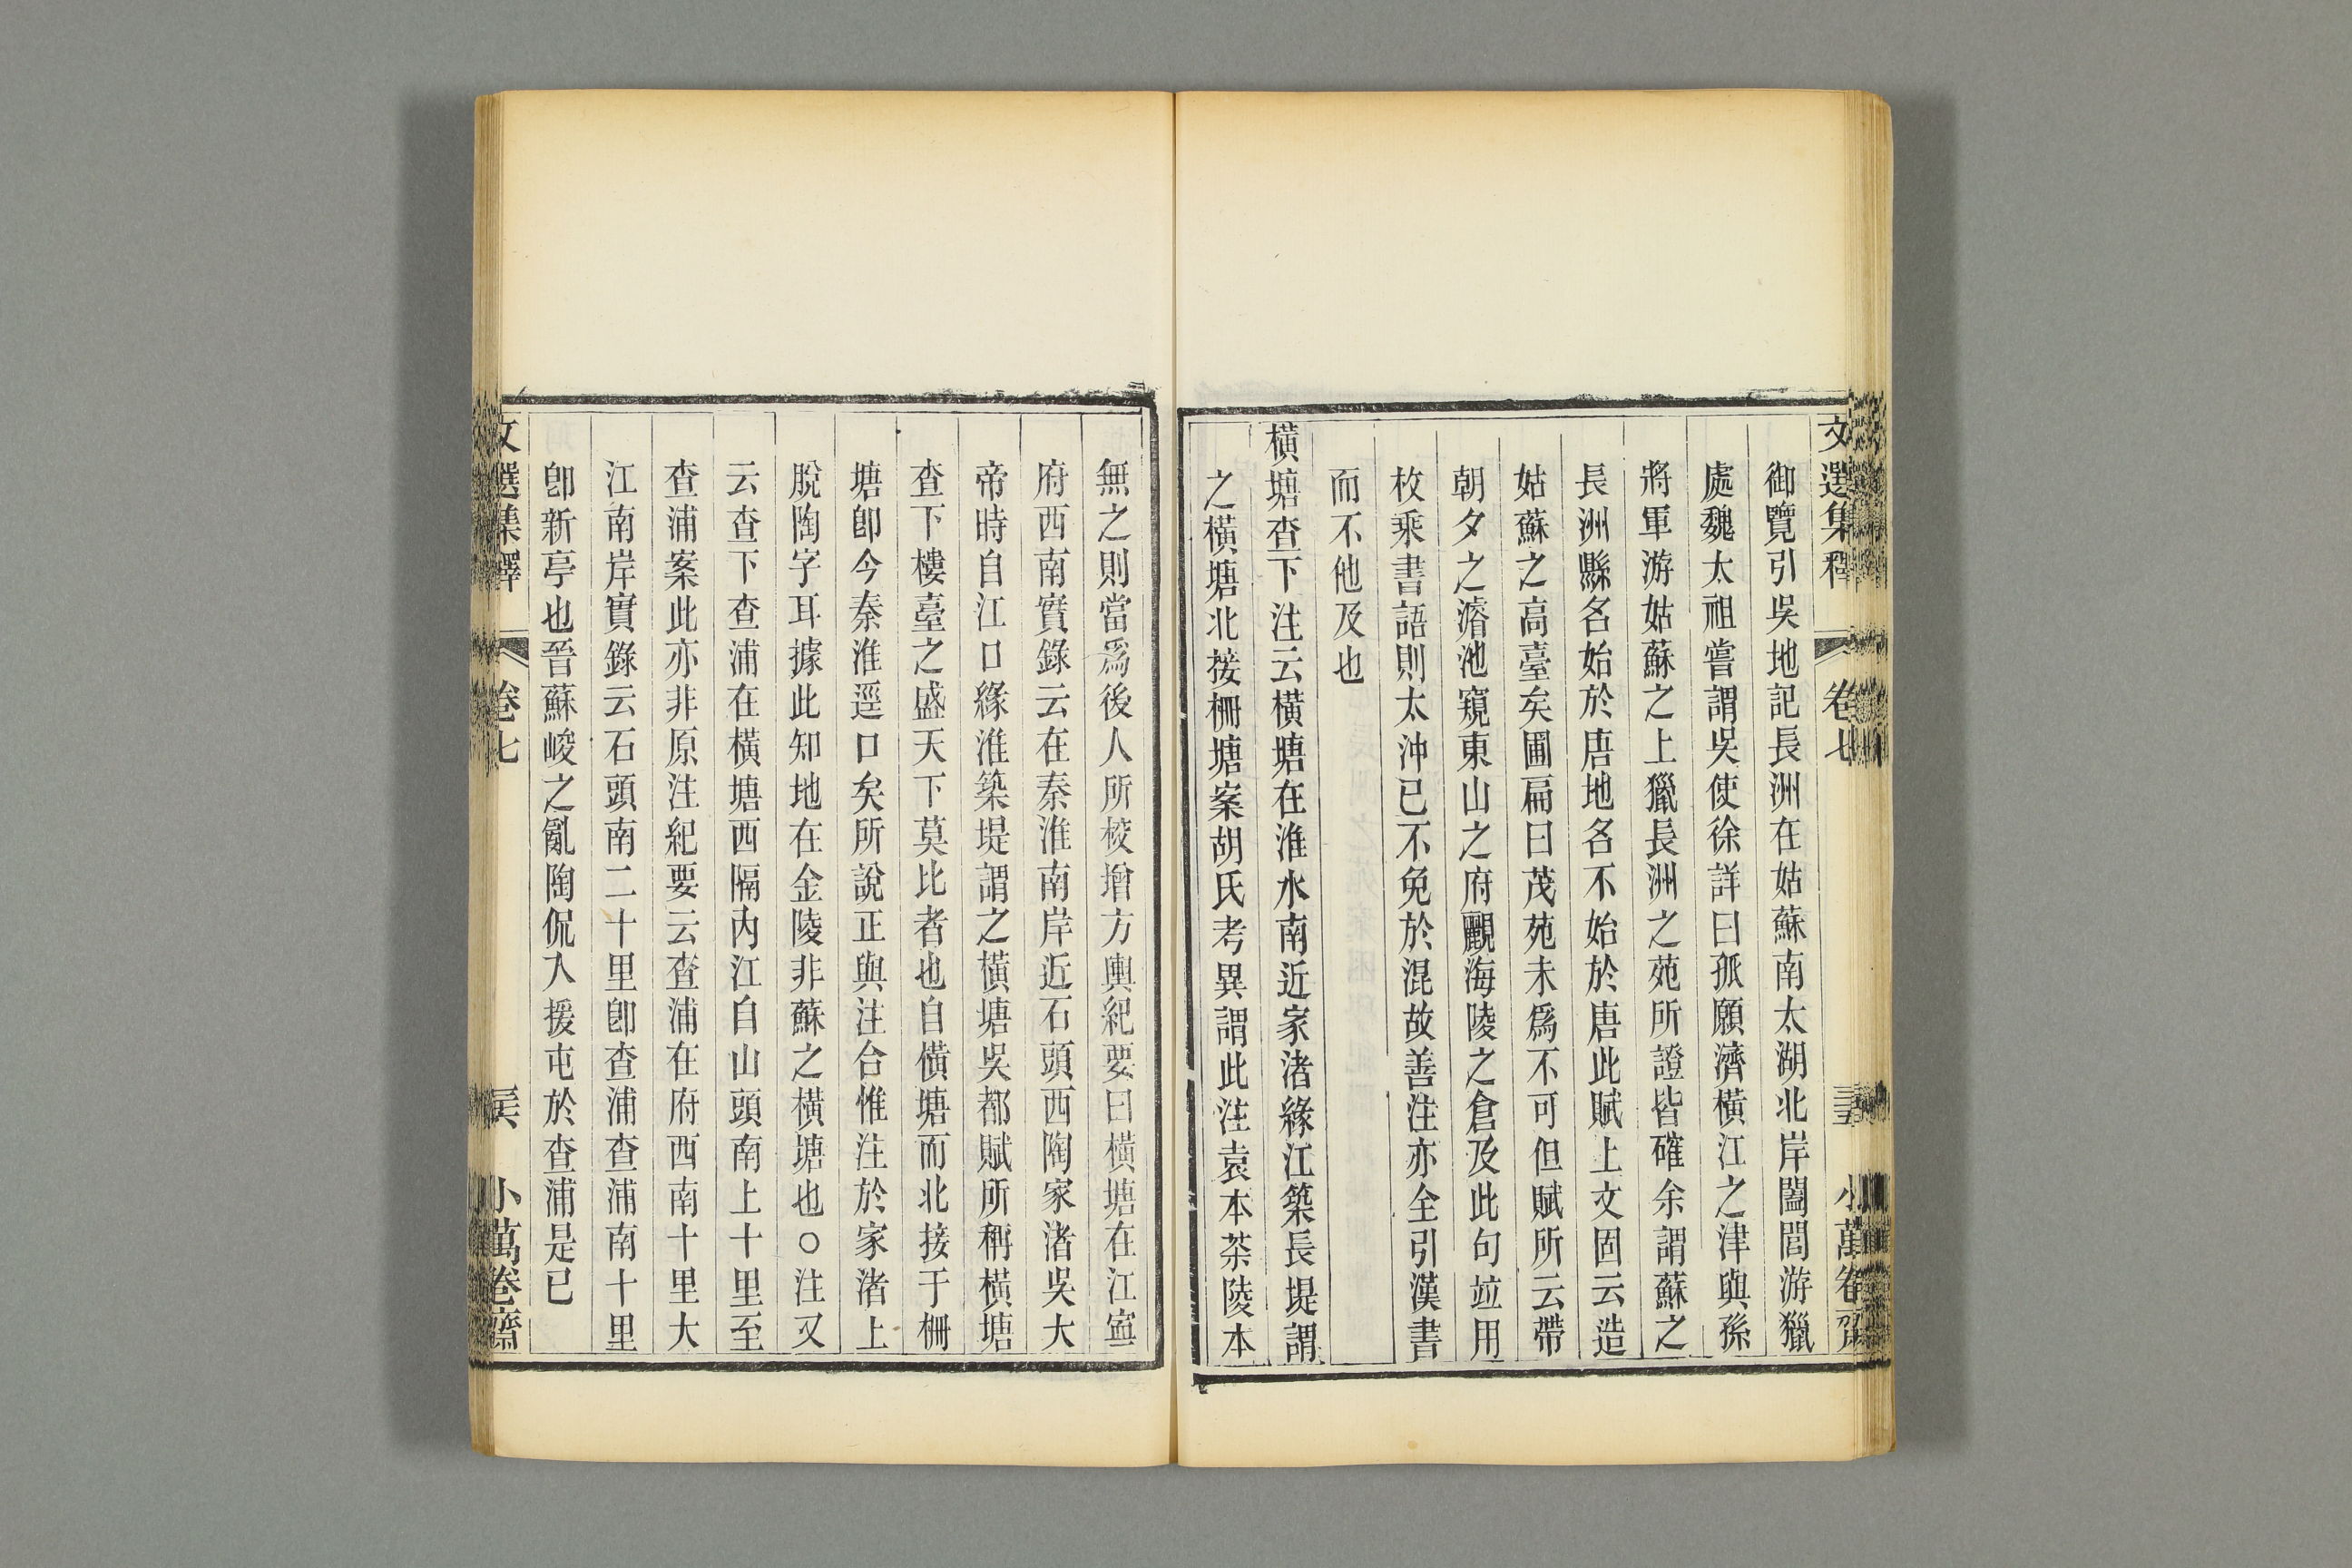 文選集釋 卷七 小萬卷齋
御覽引吳地記長洲在姑蘇南太湖北岸闔閭游獵
處魏太祖嘗謂吳使徐詳曰孤願濟橫江之津與孫
將軍游姑蘇之上獵長洲之苑所證皆確余謂蘇之
長洲縣名始於唐地名不始於唐此賦上文固云造
姑蘇之高臺矣圃扁曰茂苑未爲不可但賦所云帶
朝夕之濬池窺東山之府覼海陵之倉及此句竝用
枚乘書語則太沖已不免於混故善注亦全引漢書
而不他及也
橫塘查下注云橫塘在淮水南近家渚緣江築長堤謂
之橫塘北接柵塘案胡氏考異謂此注袁本茶陵本
無之則當爲後人所校增方輿紀要曰橫塘在江寍
府西南實錄云在秦淮南岸近石頭西陶家渚吳大
帝時自江口緣淮築堤謂之橫塘吳都賦所稱橫塘
查下樓臺之盛天下莫比者也自橫塘而北接于柵
塘卽今秦淮逕口矣所說正與注合惟注於家渚上
脫陶字耳據此知地在金陵非蘇之橫塘也○注又
云查下查浦在橫塘西隔內江自山頭南上十里至
查浦案此亦非原注紀要云查浦在府西南十里大
江南岸實錄云石頭南二十里卽查浦查浦南十里
卽新亭也晉蘇峻之亂陶侃入援屯於查浦是已
文選集釋 卷七 小萬卷齋